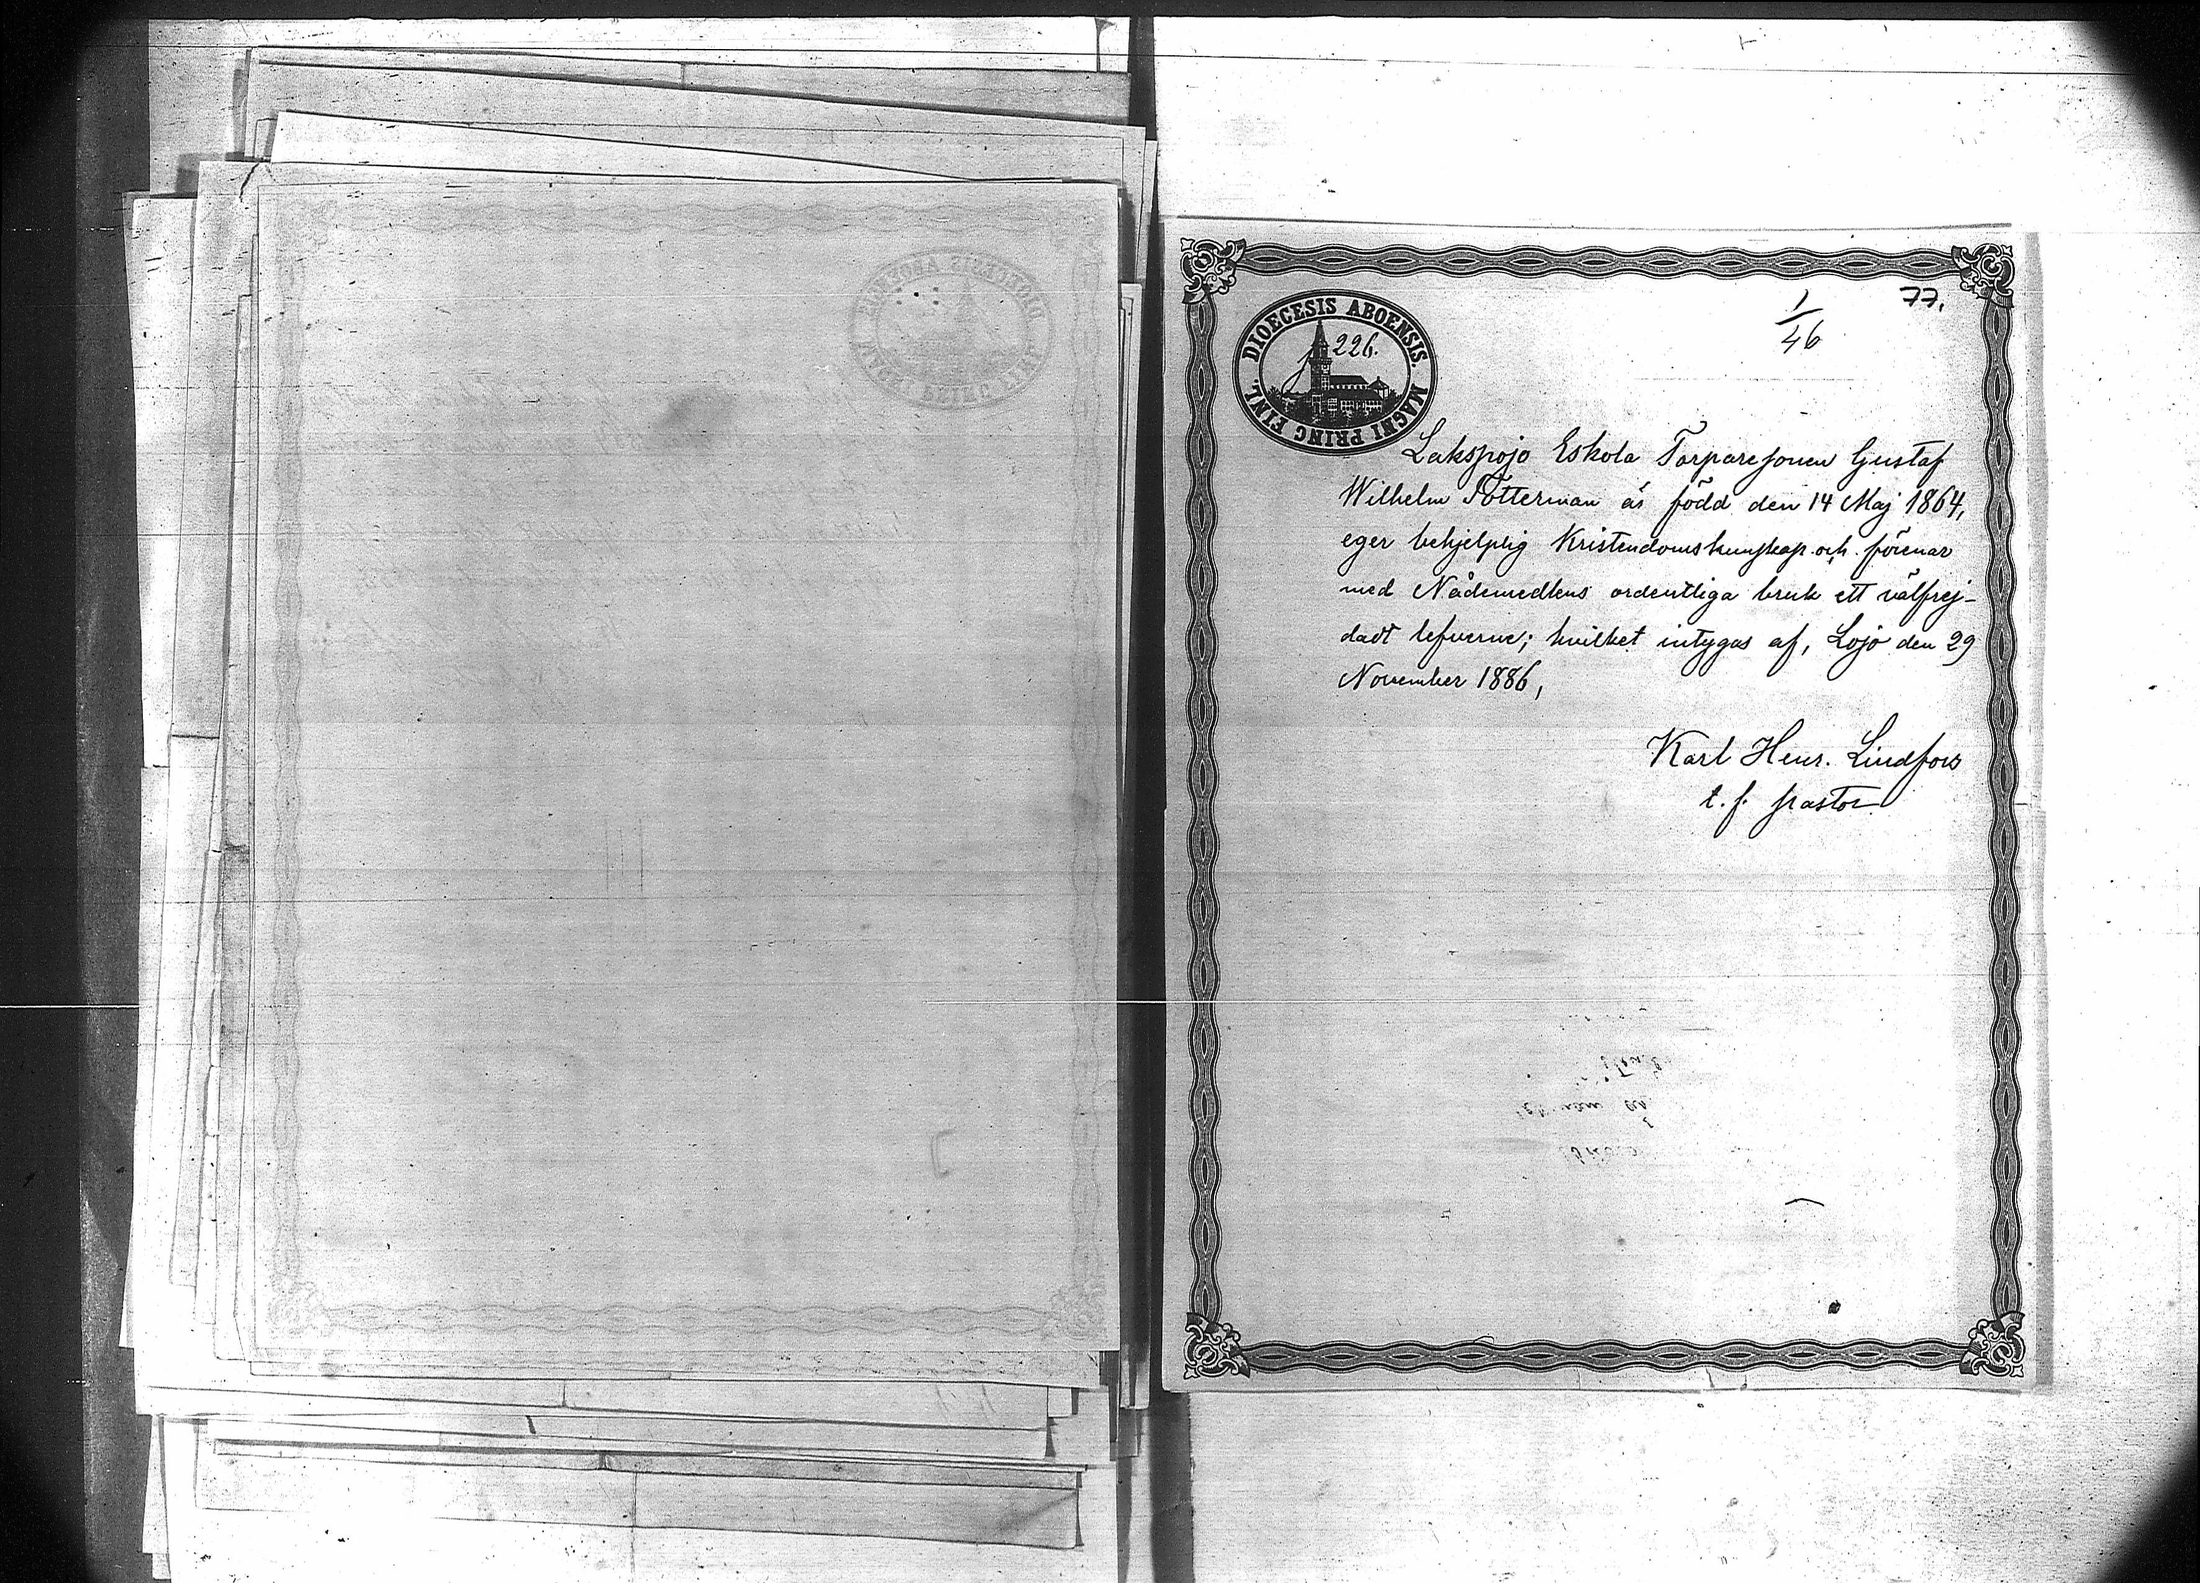 77.
1/46
DIOECESIS ABOENSIS. MAGNI PRINC FINL.
226.
Lakspojo Eskola Torparesonen Gustaf
Wilhelm Totterman är född den 14 Maj 1864,
eger behjelplig Kristendomskunskap och förenar
med Nådemedlens ordentliga bruk ett välfrej-
dadt lefverne; hvilket intygas af, Lojo den 29
November 1886,
Karl Henr. Lindfors
t. f. pastor